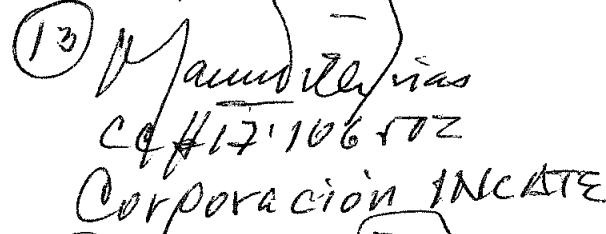 13
CC # 17'106502
Corporación INCATE